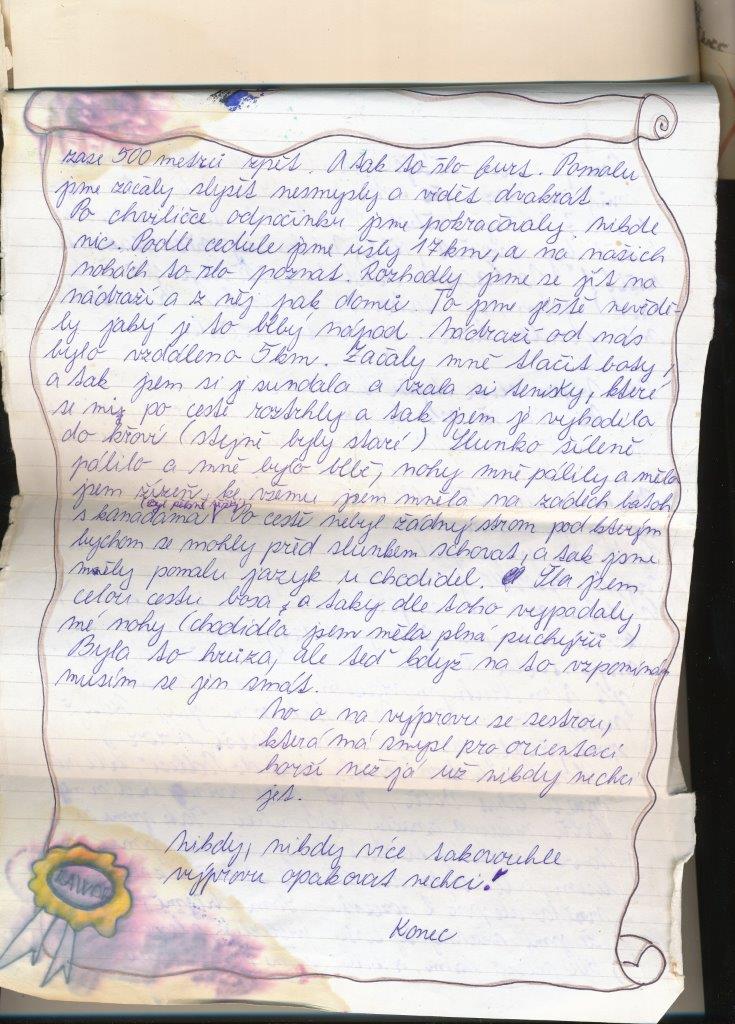 zase 500 metrů zpět. A tak to šlo furt. Pomalu
jsme začaly slyšet nesmysly a vidět dvakrát.
Po chviličce odpočinku jsme pokračovaly, nikde
nic. Podle cedule jsme ušly 17 km, a na našich
nohách to šlo poznat. Rozhodly jsme se jít na
nádraží a z něj pak domů. To jsme ještě nevědě-
ly jaký je to blbý nápad. Nádraží od nás
bylo vzdáleno 5 km. Začaly mně tlačit boty,
a tak jsem si je sundala a vzala si tenisky, které
se mi po cestě roztrhly a tak jsem je vyhodila
do křoví (stejně byly staré) Slunko šíleně
pálilo a mně bylo blbě, nohy mně pálily a měla
jsem žízeň, ke všemu jsem mněla na zádech batoh
s kanadama Po cestě nebyl žádný strom pod kterým
bychom se mohly před slunkem schovat, a tak jsme
měly pomalu jazyk u chodidel. Šla jsem
celou cestu bosa, a taky dle toho vypadaly,
mé nohy (chodidla jsem měla plná puchejřů)
Byla to hrůza, ale teď když na to vzpomínám
musím se jen smát.
No a na výpravu se sestrou,
která má smysl pro orientaci
horší než já už nikdy nechci
jet.
Nikdy, nikdy více takovouhle
výpravu opakovat nechci!
Konec